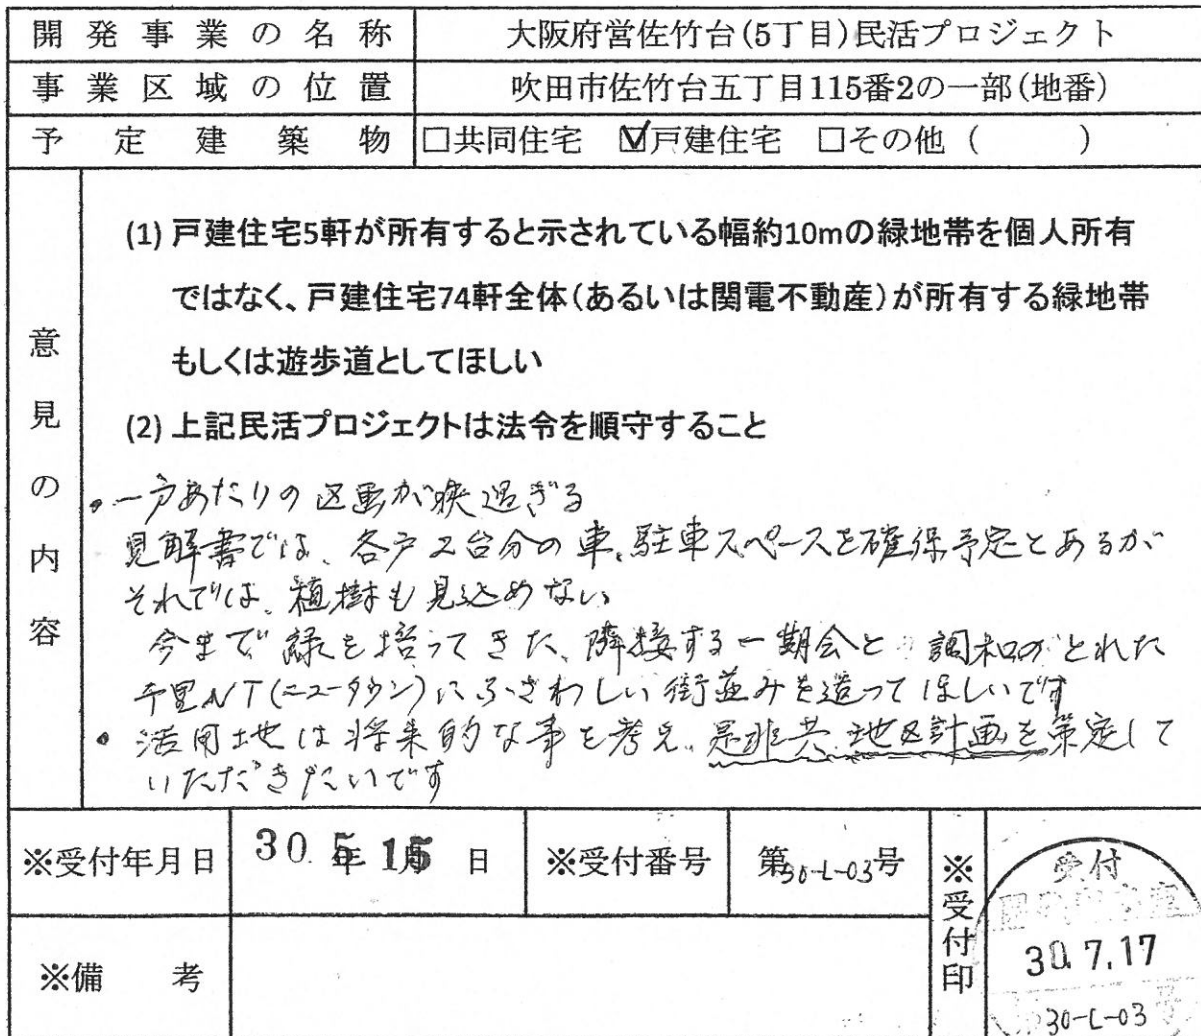 開発事業の名称 大阪府営佐竹台(5丁目)民活プロジェクト
事業区域の位置 吹田市佐竹台五丁目115番2の一部(地番)
予定建築物 □共同住宅 ☑戸建住宅 □その他( )
意見の内容
(1) 戸建住宅5軒が所有すると示されている幅約10mの緑地帯を個人所有
ではなく、戸建住宅74軒全体(あるいは関電不動産)が所有する緑地帯
もしくは遊歩道としてほしい
(2) 上記民活プロジェクトは法令を順守すること
・一戸あたりの区画が狭過ぎる
見解書では、各戸2台分の車、駐車スペースを確保予定とあるが
それでは、植樹も見込めない
今まで緑を培ってきた、隣接する一期会と調和がとれた
千里NT(ニュータウン)にふさわしい街並みを造ってほしいです
・活用地は将来的な事を考え、是非共、地区計画を策定して
いただきたいです
※受付年月日 30.5年15日 ※受付番号 第30-L-03号 ※受付印
受付
30.7.17
30-L-03
※備考